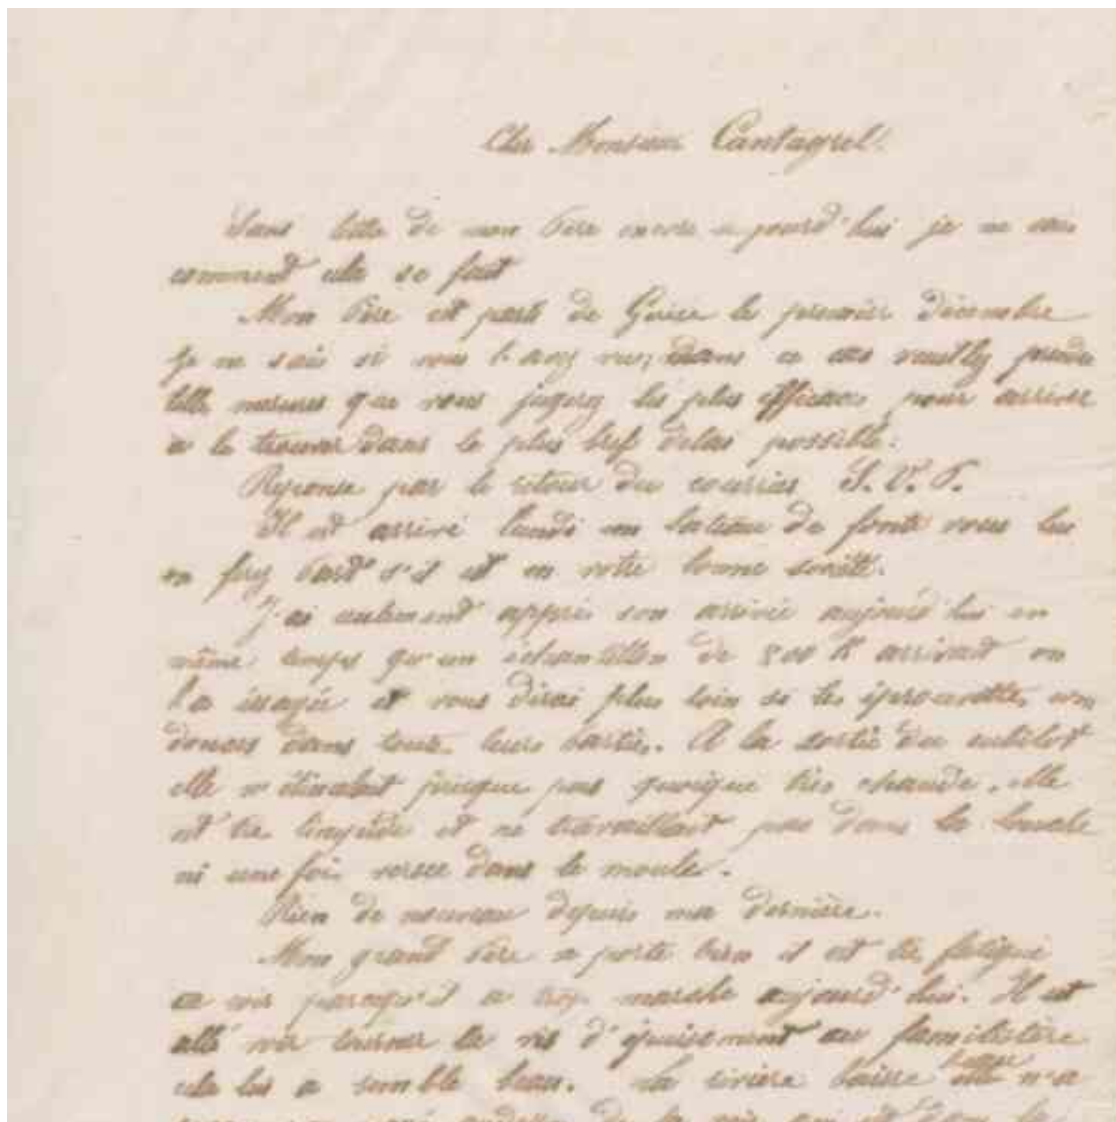 Cher Monsieur Cantagrel
Sans lettre de mon Père encore aujourd'hui je ne sais
comment cela se fait
Mon Père est parti de Guise le premier décembre
Je ne sais si vous l'avez vu, dans ce cas veuillez prendre
telle mesures que vous jugerez les plus efficaces pour arriver
à le trouver dans le plus bref délai possible.
Réponse par le retour du courrier S.V.P.
Il est arrivé lundi un bateau de fonte vous lui
en ferez part s'il est en votre bonne société.
J'ai seulement appris son arrivée aujourd'hui en
même temps qu'un échantillon de 500 K arrivait on
l'a essayée et vous dirai plus loin si les éprouvettes sont
douces dans toutes leurs parties. A la sortie du cubilot
elle n'étincelait presque pas quoique très chaude. elle
est très liquide et ne travaillait pas dans la
ni une fois versée dans le moule.
Rien de nouveau depuis ma dernière.
Mon grand Père se porte bien il est très fatigué
ce soir parcequ'il a trop marché aujourd'hui. Il est
allé voir tourner la vis d'épuisement au familistère
cela lui a semblé beau. La rivière baisse l'eau n'a
de la vis qui est dans la